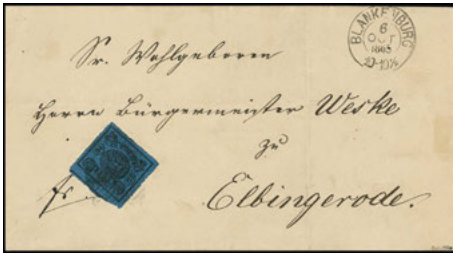 BLANKENBURG
6
OCT
1865
10-10½
Sr. Wohlgeboren
Herrn Bürgermeister Weske
zu
fr.
Elbingerode.